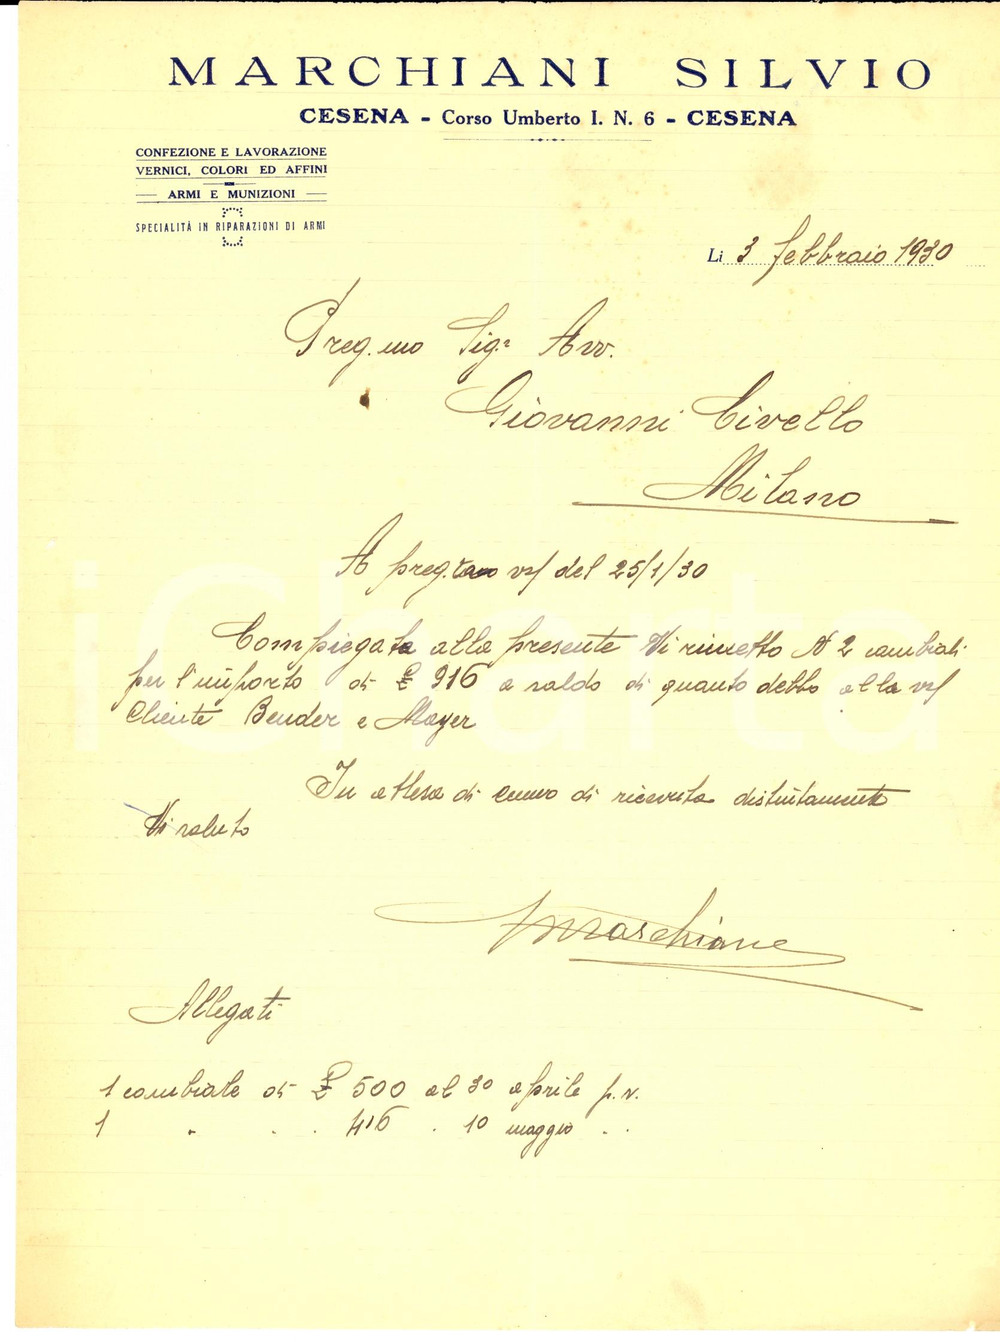 MARCHIANI SILVIO
CESENA - Corso Umberto I. N. 6 - CESENA
CONFEZIONE E LAVORAZIONE
VERNICI, COLORI ED AFFINI
ARMI E MUNIZIONI
SPECIALITÀ IN RIPARAZIONI DI ARMI
Li 3 febbraio 1930
Preg.mo Sigr Avv.
Giovanni Civello
Milano
A preg.ta vs/ del 25/1/30
Compiegata alla presente Vi rimetto N 2 cambiali
per l'importo di £ 916 a saldo di quanto debbo alla vs/
Cliente Bender e Mayer
In attesa di cenno di ricevuta distintamente
Vi saluto
Marchiani
Allegati
1 cambiale di £ 500 al 30 aprile p.v.
1 " " " 416 " 10 maggio " "
iCharta